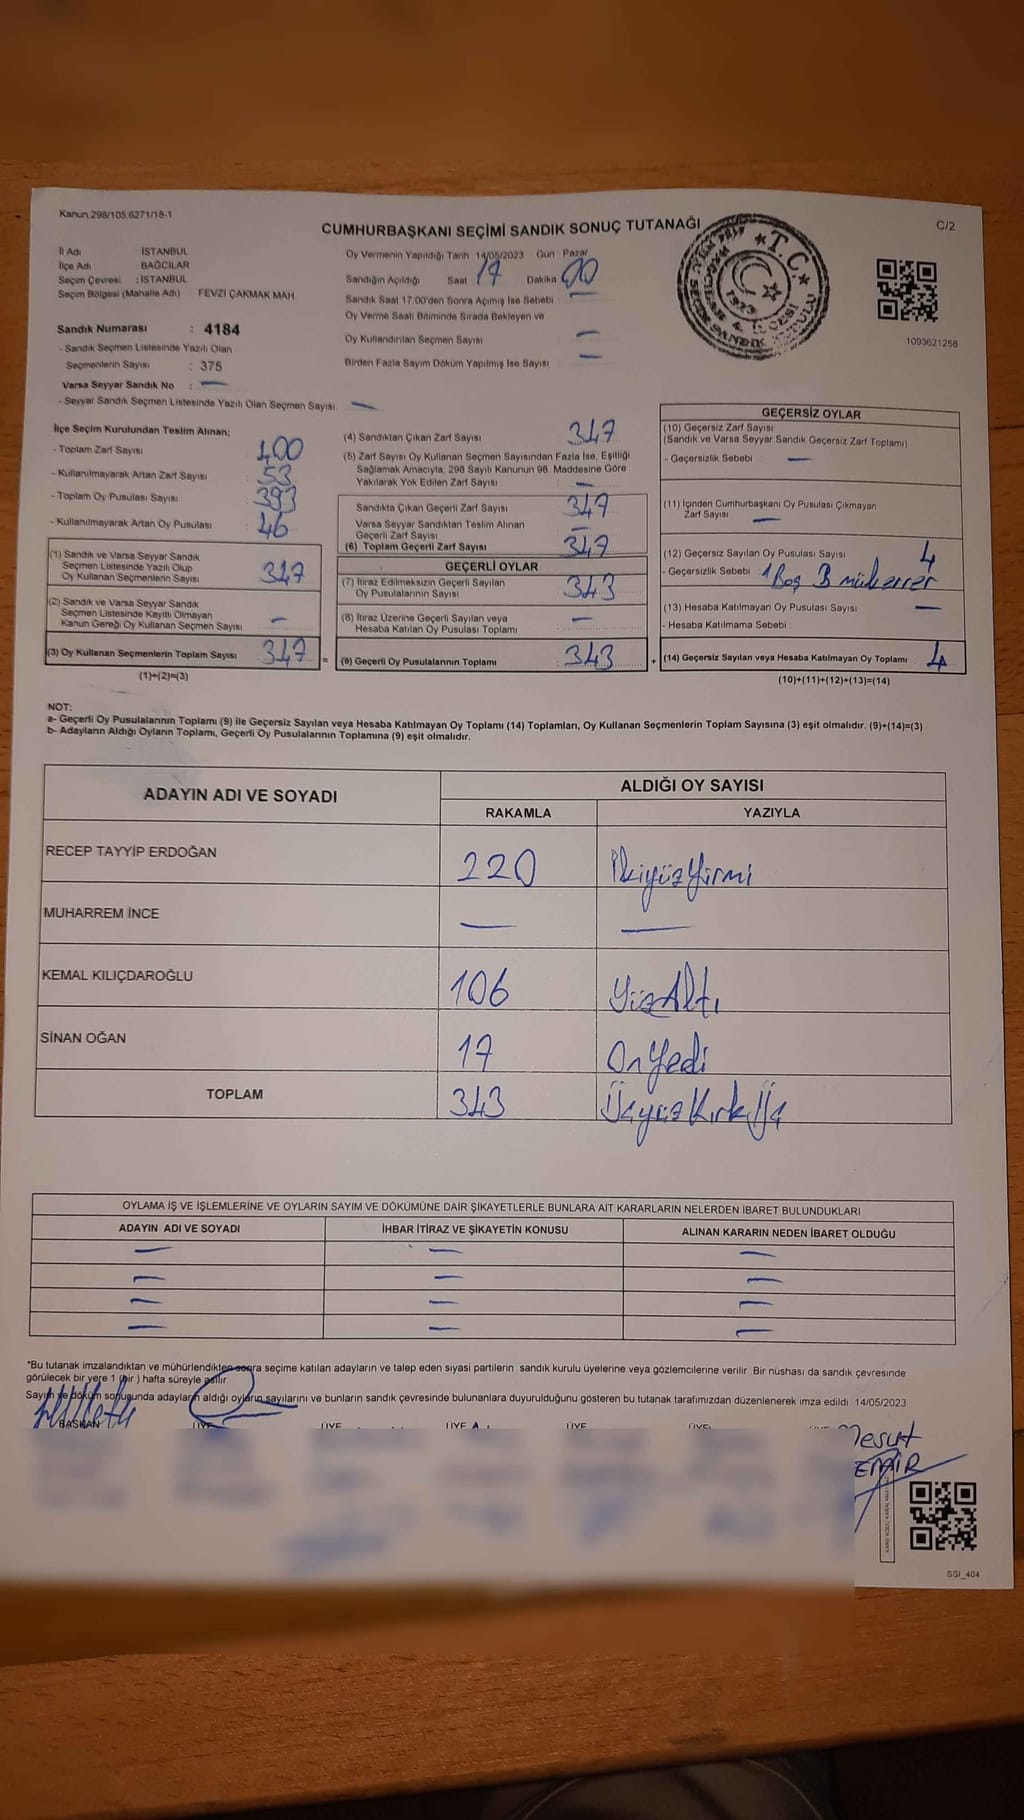 Kanun:298/105;6271/18-1
CUMHURBAŞKANI SEÇİMİ SANDIK SONUÇ TUTANAĞI
C/2
İl Adı : İSTANBUL
İlçe Adı : BAĞCILAR
Seçim Çevresi : İSTANBUL
Seçim Bölgesi (Mahalle Adı) FEVZİ ÇAKMAK MAH
Sandık Numarası : 4184
- Sandık Seçmen Listesinde Yazılı Olan
Seçmenlerin Sayısı : 375
Varsa Seyyar Sandık No : —
- Seyyar Sandık Seçmen Listesinde Yazılı Olan Seçmen Sayısı: —
Oy Vermenin Yapıldığı Tarih 14/05/2023 Gün Pazar
Sandığın Açıldığı Saat 17 Dakika 00
Sandık Saat 17.00'den Sonra Açımış İse Sebebi : —
Oy Verme Saati Bitiminde Sırada Bekleyen ve
Oy Kullandırılan Seçmen Sayısı : —
Birden Fazla Sayım Döküm Yapılmış İse Sayısı : —
T.C.
1093621258
İlçe Seçim Kurulundan Teslim Alınan;
- Toplam Zarf Sayısı : 400
- Kullanılmayarak Artan Zarf Sayısı : 53
- Toplam Oy Pusulası Sayısı : 393
- Kullanılmayarak Artan Oy Pusulası : 46
(1) Sandık ve Varsa Seyyar Sandık
Seçmen Listesinde Yazılı Olup
Oy Kullanan Seçmenlerin Sayısı : 347
(2) Sandık ve Varsa Seyyar Sandık
Seçmen Listesinde Kayıtlı Olmayan
Kanun Gereği Oy Kullanan Seçmen Sayısı : —
(3) Oy Kullanan Seçmenlerin Toplam Sayısı : 347 =
(1)+(2)=(3)
(4) Sandıktan Çıkan Zarf Sayısı : 347
(5) Zarf Sayısı Oy Kullanan Seçmen Sayısından Fazla İse, Eşitliği
Sağlamak Amacıyla, 298 Sayılı Kanunun 98. Maddesine Göre
Yakılarak Yok Edilen Zarf Sayısı : —
Sandıkta Çıkan Geçerli Zarf Sayısı : 347
Varsa Seyyar Sandıktan Teslim Alınan
Geçerli Zarf Sayısı : —
(6) Toplam Geçerli Zarf Sayısı : 347
GEÇERLİ OYLAR
(7) İtiraz Edilmeksizin Geçerli Sayılan
Oy Pusulalarının Sayısı : 343
(8) İtiraz Üzerine Geçerli Sayılan veya
Hesaba Katılan Oy Pusulası Toplamı : —
(9) Geçerli Oy Pusulalarının Toplamı : 343 +
GEÇERSİZ OYLAR
(10) Geçersiz Zarf Sayısı
(Sandık ve Varsa Seyyar Sandık Geçersiz Zarf Toplamı)
- Geçersizlik Sebebi : —
(11) İçinden Cumhurbaşkanı Oy Pusulası Çıkmayan
Zarf Sayısı : —
(12) Geçersiz Sayılan Oy Pusulası Sayısı : 4
- Geçersizlik Sebebi : 1 Boş 3 mükerrer
(13) Hesaba Katılmayan Oy Pusulası Sayısı : —
- Hesaba Katılmama Sebebi :
(14) Geçersiz Sayılan veya Hesaba Katılmayan Oy Toplamı : 4
(10)+(11)+(12)+(13)=(14)
NOT:
a- Geçerli Oy Pusulalarının Toplamı (9) ile Geçersiz Sayılan veya Hesaba Katılmayan Oy Toplamı (14) Toplamları, Oy Kullanan Seçmenlerin Toplam Sayısına (3) eşit olmalıdır. (9)+(14)=(3)
b- Adayların Aldığı Oyların Toplamı, Geçerli Oy Pusulalarının Toplamına (9) eşit olmalıdır.
ADAYIN ADI VE SOYADI ALDIĞI OY SAYISI
RAKAMLA YAZIYLA
RECEP TAYYİP ERDOĞAN 220 İkiyüzYirmi
MUHARREM İNCE — —
KEMAL KILIÇDAROĞLU 106 YüzAltı
SİNAN OĞAN 17 OnYedi
TOPLAM 343 ÜçyüzKırkÜç
OYLAMA İŞ VE İŞLEMLERİNE VE OYLARIN SAYIM VE DÖKÜMÜNE DAİR ŞİKAYETLERLE BUNLARA AİT KARARLARIN NELERDEN İBARET BULUNDUKLARI
ADAYIN ADI VE SOYADI İHBAR İTİRAZ VE ŞİKAYETİN KONUSU ALINAN KARARIN NEDEN İBARET OLDUĞU
— — —
— — —
— — —
— — —
*Bu tutanak imzalandıktan ve mühürlendikten sonra seçime katılan adayların ve talep eden siyasi partilerin sandık kurulu üyelerine veya gözlemcilerine verilir. Bir nüshası da sandık çevresinde
görülecek bir yere 1 (bir) hafta süreyle asılır.
Sayım ve döküm sonucunda adayların aldığı oyların sayılarını ve bunların sandık çevresinde bulunanlara duyurulduğunu gösteren bu tutanak tarafımızdan düzenlenerek imza edildi 14/05/2023
BAŞKAN ÜYE ÜYE ÜYE ÜYE ÜYE
Mesut
SSI_404